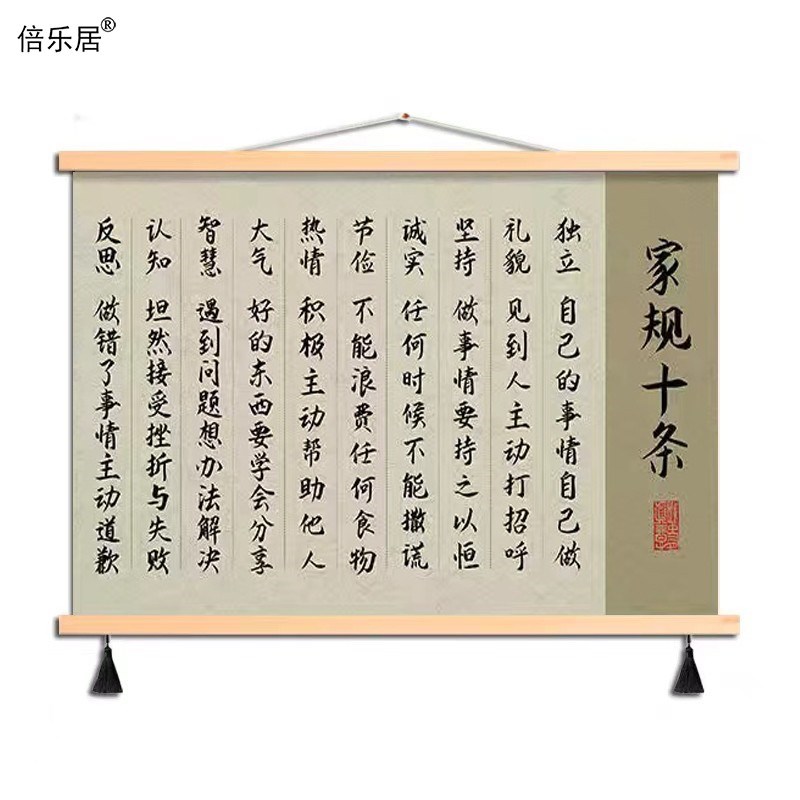 倍乐居®
家规十条
独立 自己的事情自己做
礼貌 见到人主动打招呼
坚持 做事情要持之以恒
诚实 任何时候不能撒谎
节俭 不能浪费任何食物
热情 积极主动帮助他人
大气 好的东西要学会分享
智慧 遇到问题想办法解决
认知 坦然接受挫折与失败
反思 做错了事情主动道歉